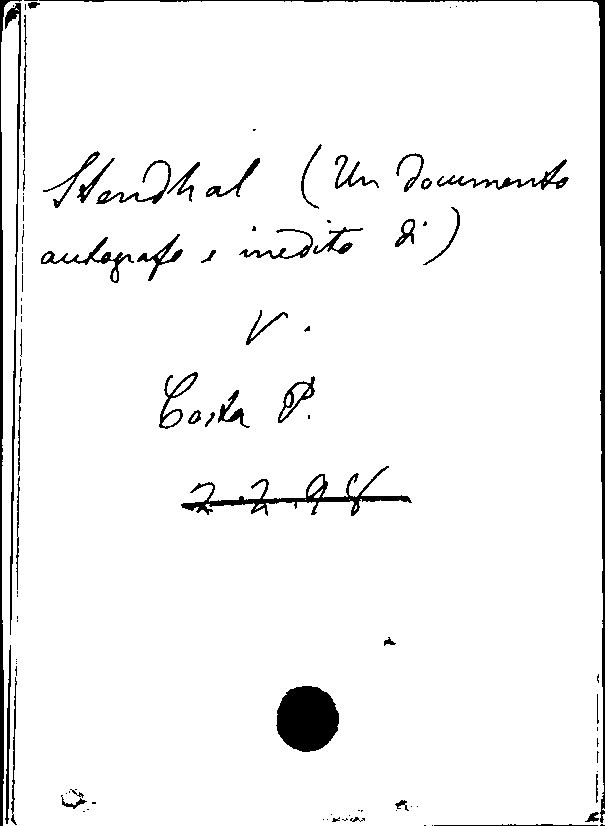 Stendhal (Un documento
autografo e inedito di)
V.
Costa P.
2.2.98